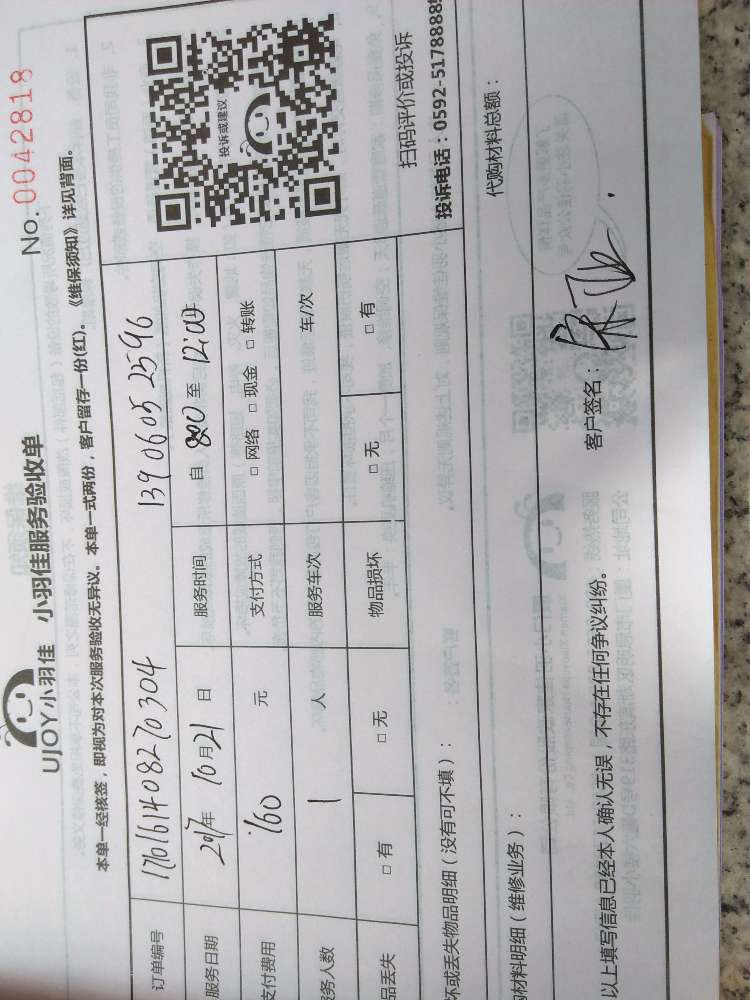 UJOY小羽佳 小羽佳服务验收单
No. 0042818
本单一经核签，即视为对本次服务验收无异议。本单一式两份，客户留存一份(红)。《维保须知》详见背面。
订单编号 176161408270304 139 0605 2596
服务日期 2017年 10月21日 服务时间 自 800 至 12:00
支付费用 160 元 支付方式 □ 网络 □ 现金 □ 转账
务人数 1 人 服务车次 车/次
品丢失 □ 有 □ 无 物品损坏 □ 无 □ 有
投诉或建议
扫码评价或投诉
投诉电话：0592-5178888
坏或丢失物品明细（没有可不填）：
材料明细（维修业务）：
代购材料总额：
以上填写信息已经本人确认无误，不存在任何争议纠纷。
客户签名：